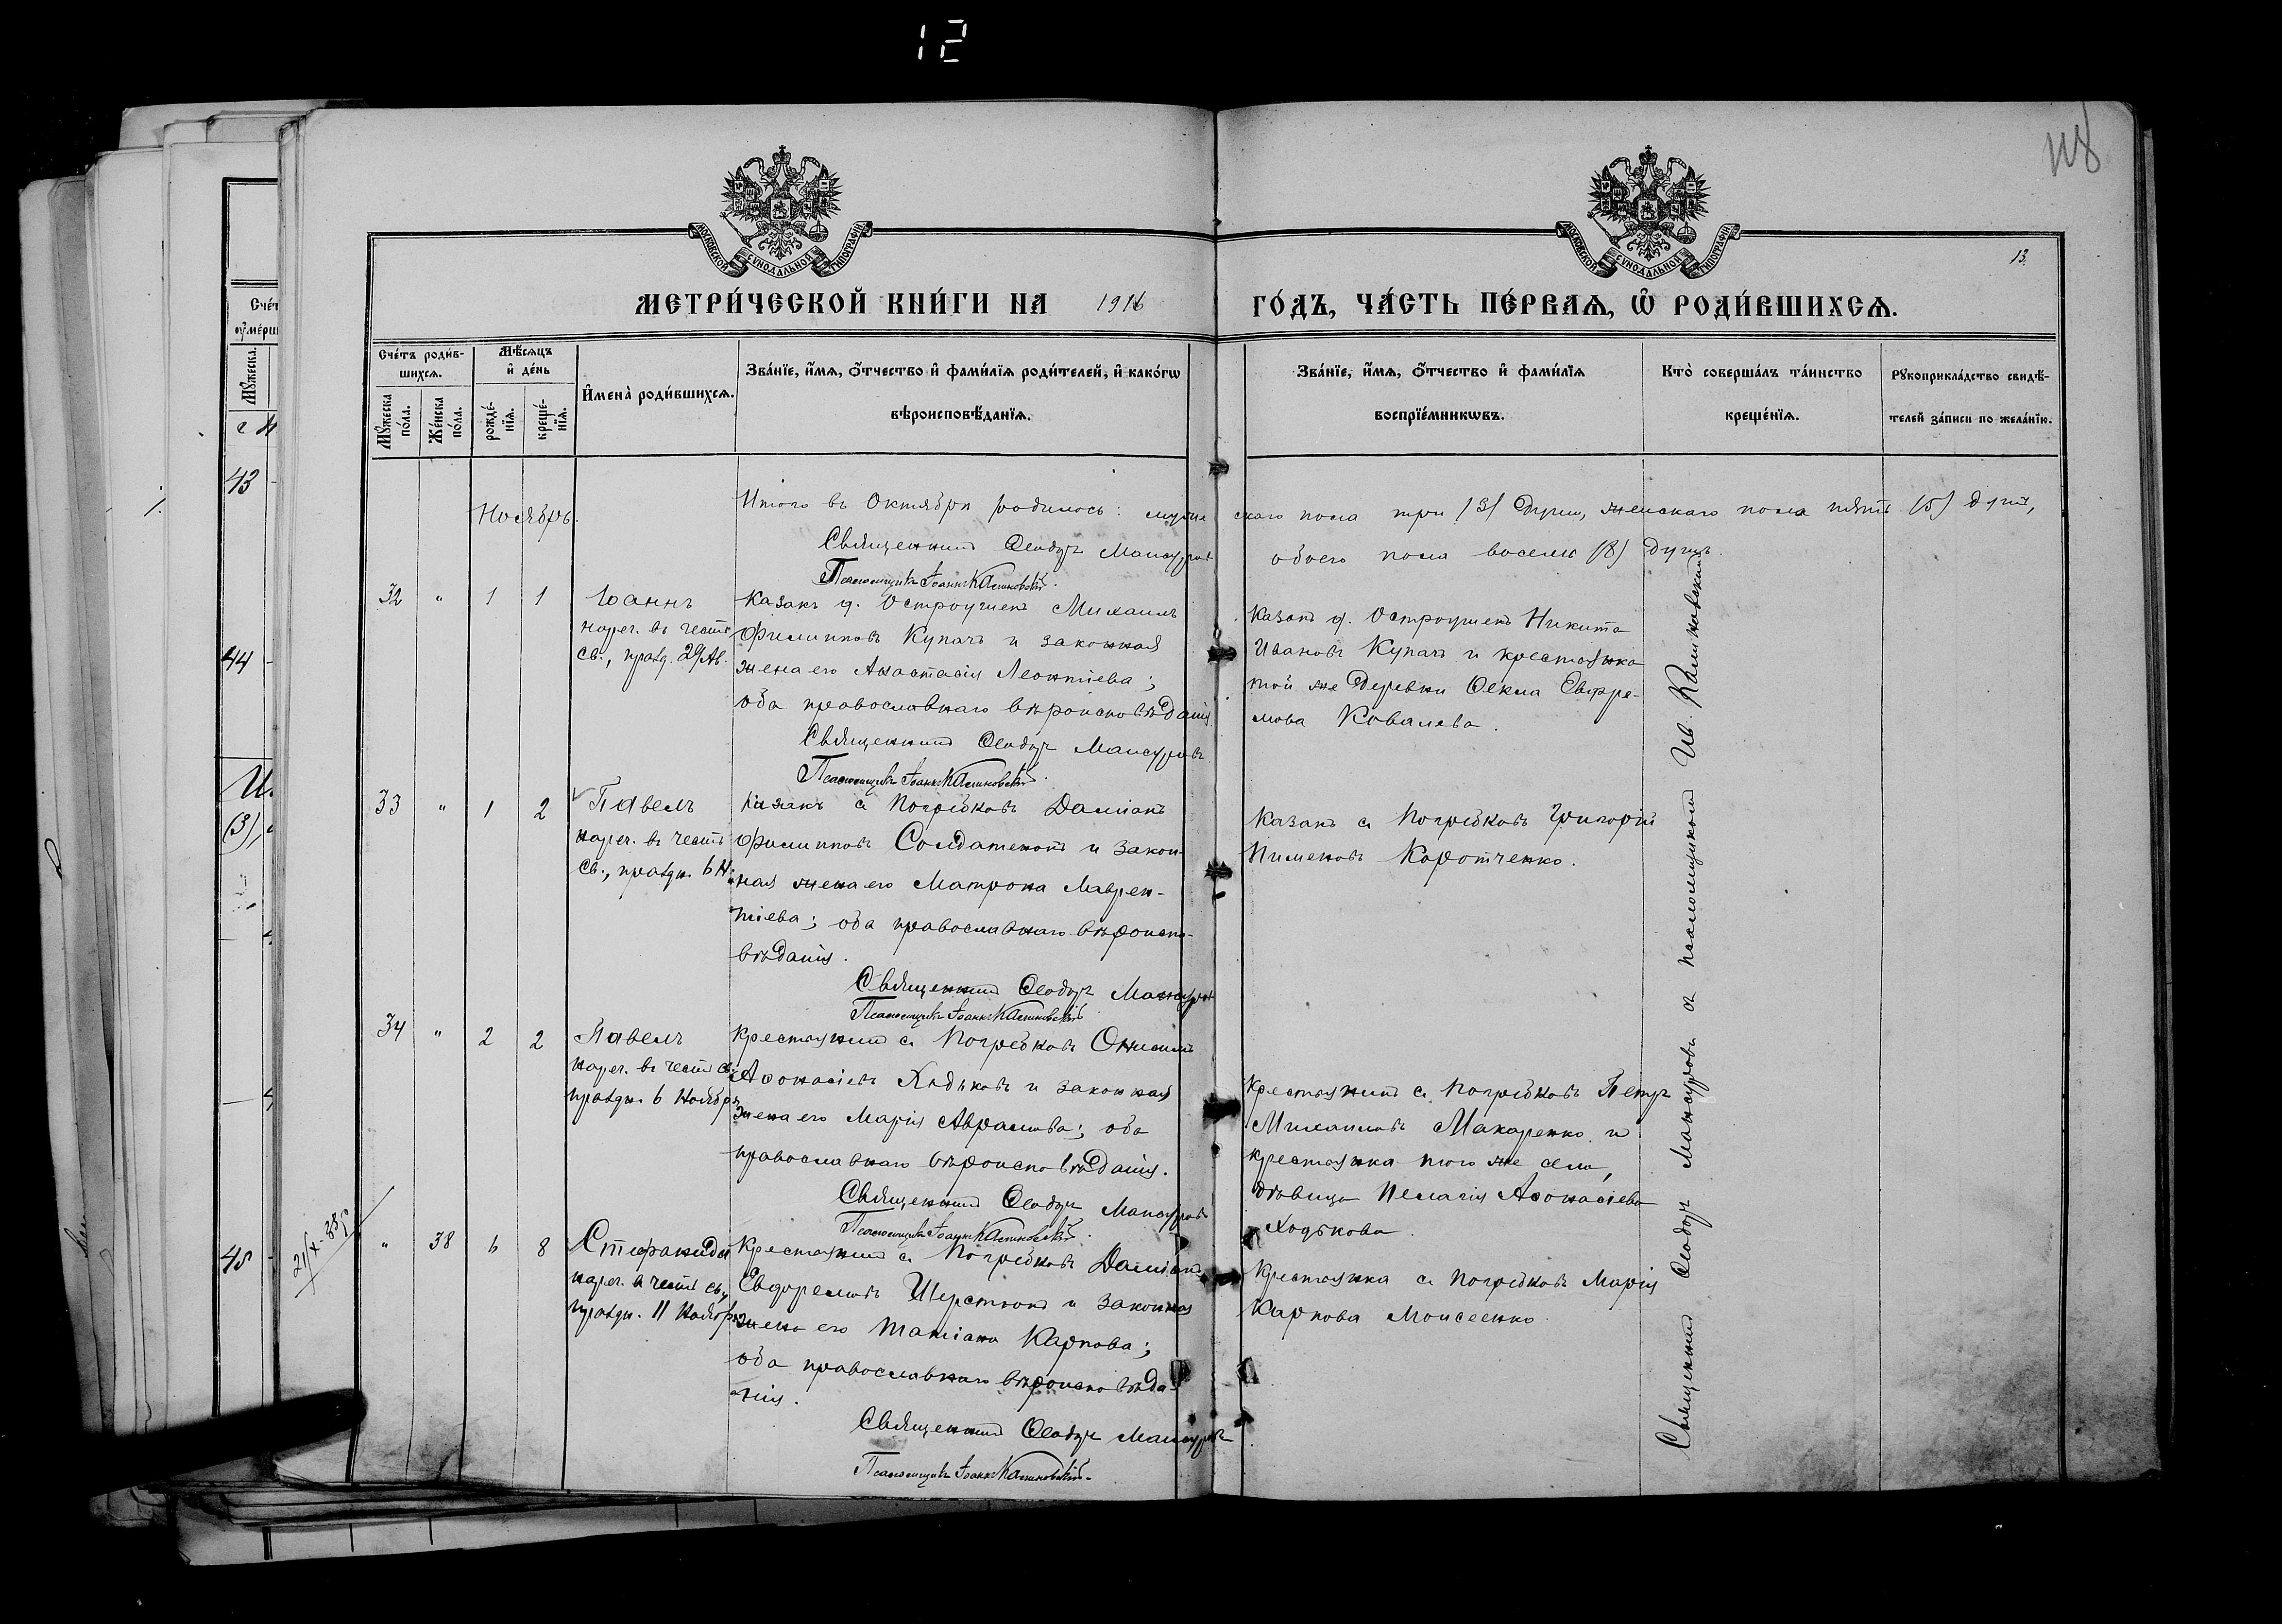 12
118
13.
МОСКОВСКОЙ СѴНОДАЛЬНОЙ ТИПОГРАФІИ
МОСКОВСКОЙ СѴНОДАЛЬНОЙ ТИПОГРАФІИ
МЕТРИ́ЧЕСКОЙ КНИ́ГИ НА 1916 ГО́ДЪ, ЧА́СТЬ ПЕ́РВАѦ, Ѽ РОДИ́ВШИХСѦ.
Сче́тъ роди́в-
шихсѧ.
Мꙋ́жеска по́ла.
Же́нска по́ла.
Мѣ́сѧцъ и҆ де́нь
рожде́-
нїѧ.
креще́-
нїѧ.
И҆мена̀ роди́вшихсѧ.
Зва́нїе, и҆́мѧ, ѻ҆́тчество и҆ фами́лїѧ роди́телей, и҆ како́гѡ
вѣроисповѣ́данїѧ.
Зва́нїе, и҆́мѧ, ѻ҆́тчество и҆ фами́лїѧ
воспрїе́мникѡвъ.
Кто̀ соверша́лъ та́инство
креще́нїѧ.
Рꙋкоприкла́дство свидѣ́-
телей за́писи по жела́нїю.
Ноябрь.
Итого въ Октябрѣ родилось: мужескаго пола три (3) души, женскаго пола пять (5) душъ,
обоего пола восемь (8) душъ.
Священникъ Ѳеодоръ Мансуровъ
Псаломщикъ Іоаннъ Калиновскій.
32 " 1 1
Іоаннъ
нареч. въ честь
св., празд. 29 Ав.
Казакъ д. Остроушекъ Михаилъ
Филипповъ Купачъ и законная
жена его Анастасія Леонтіева;
оба православнаго вѣроисповѣданія.
Священникъ Ѳеодоръ Мансуровъ
Псаломщикъ Іоаннъ Калиновскій.
Казакъ д. Остроушекъ Никита
Ивановъ Купачъ и крестьянка
той же деревни Ѳекла Евфре-
мова Ковалева.
33 " 1 2
Павелъ
нареч. въ честь
св., праздн. 6 Н.
Казакъ с. Погребковъ Даміанъ
Филипповъ Солдатенокъ и закон-
ная жена его Матрона Лаврен-
тіева; оба православнаго вѣроиспо-
вѣданія.
Священникъ Ѳеодоръ Мансуровъ
Псаломщикъ Іоаннъ Калиновскій.
Казакъ с. Погребковъ Григорій
Пименовъ Коротченко.
34 " 2 2
Павелъ
нареч. въ честь св.
праздн. 6 Ноября
Крестьянинъ с. Погребковъ Онисимъ
Аѳонасіевъ Ходьковъ и законная
жена его Марія Аврамова; оба
православнаго вѣроисповѣданія.
Священникъ Ѳеодоръ Мансуровъ
Псаломщикъ Іоаннъ Калиновскій.
Крестьянинъ с. Погребковъ Петръ
Михаиловъ Макаренко и
крестьянка того же села,
дѣвица Пелагія Аѳонасіева
Ходькова.
" 38 6 8
Стефанида
нареч. въ честь св.,
праздн. 11 Ноября
Крестьянинъ с. Погребковъ Даміанъ
Евфремовъ Шерстюкъ и законная
жена его Татіана Карпова;
оба православнаго вѣроисповѣда-
нія.
Священникъ Ѳеодоръ Мансуровъ
Псаломщикъ Іоаннъ Калиновскій.
Крестьянка с. Погребковъ Марія
Карпова Моисеенко.
Священникъ Ѳеодоръ Мансуровъ съ псаломщикомъ Ив. Калиновскимъ
Сче́т
Мꙋ́жеска
43
44
(3),
45